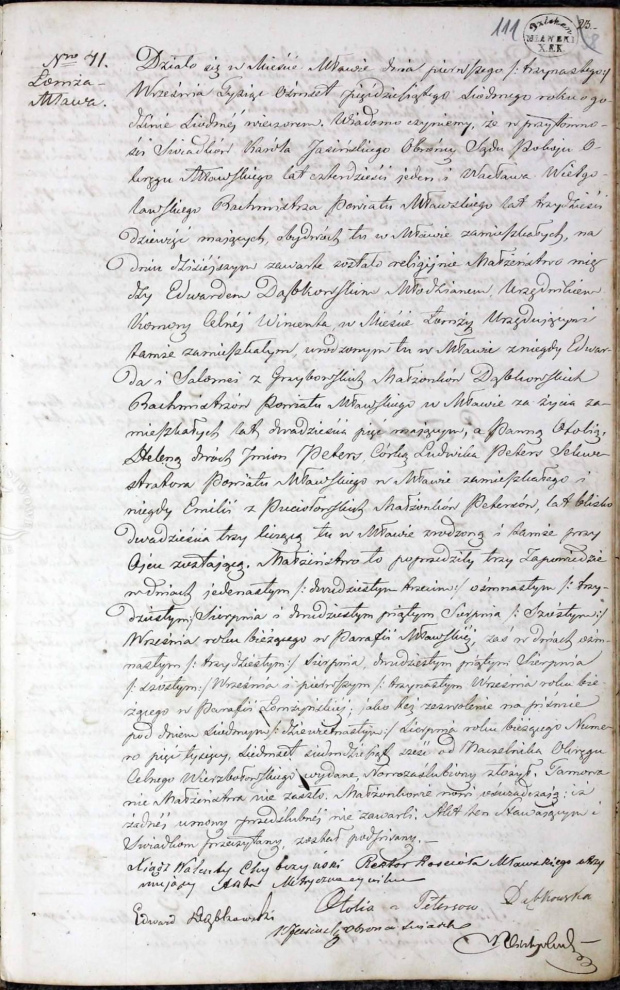 111
Nro 71.
Łomża-
Mława.
Działo się w Mieście Mławie dnia pierwszego /: trzynastego :/
Września Tysiąc Ośmset pięćdziesiątego siódmego roku o go-
dzinie siódmej wieczorem. Wiadomo czynimy, że w przytomno-
ści Świadków Karola Jasińskiego Obrońcy Sądu Pokoju O-
kręgu Mławskiego lat czterdzieści jeden, i Wacława
Rachmistrza Powiatu Mławskiego lat trzydzieści
dziewięć mających, obydwóch tu w Mławie zamieszkałych, na
dniu dzisiejszym zawarte zostało religijne Małżeństwo mię-
dzy Edwardem Dąbkowskim Młodzianem, Urzędnikiem
Komory Celnej Wincenta, w Mieście Łomży Urzędującym i
tamże zamieszkałym, urodzonym tu w Mławie z niegdy Edwar-
da i Salomei z Grzybowskich Małżonków Dąbkowskich
Rachmistrzów Powiatu Mławskiego w Mławie za życia za-
mieszkałych lat dwadzieścia pięć mającym, a Panną Otolią,
Heleną dwóch Imion Peters Córką Ludwika Peters Sekwe-
stratora Powiatu Mławskiego w Mławie zamieszkałego i
niegdy Emilii z Małżonków Petersów, lat blisko
dwadzieścia trzy liczącą tu w Mławie zrodzoną i tamże przy
Ojcu zostającą. Małżeństwo to poprzedziły trzy Zapowiedzie
w dniach jedenastym /: dwudziestym trzecim :/ ośmnastym /: trzy-
dziestym :/ Sierpnia i dwudziestym piątym Sierpnia /: Szóstym :/
Września roku bieżącego w Parafii Mławskiej, zaś w dniach ośm-
nastym /: trzydziestym :/ Sierpnia, dwudziestym piątym Sierpnia
/: szóstym :/ Września i pierwszym /: trzynastym Września roku bie-
żącego w Parafii Łomżyńskiej; jako też zezwolenie na piśmie
pod dniem siódmym /: dziewiętnastym :/ Sierpnia roku bieżącego Nume-
ro pięć tysięcy, siedmset siedmdziesiąt sześć od Naczelnika Okręgu
Celnego Wierzbołowskiego wydane, Nowozaślubiony złożył. Tamowa-
nie Małżeństwa nie zaszło. Małżonkowie nowi oświadczają: iż
żadnej umowy przedślubnej nie zawarli. Akt ten stawającym i
Świadkom przeczytany, został podpisany. —
Ksiądz Walenty Chybczyński Rektor Kościoła Mławskiego utrzy
mujący Akta
Edward Dąbkowski
Otolia z Petersow Dąbkowska